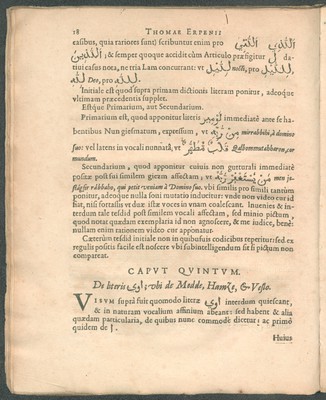 18 THOMAE ERPENII
casibus, quia rariores sunt) scribuntur enim pro
& semper quoque accidit cùm Articulo præfigitur
datiui casus nota, ne tria Lam concurrant: vt nocti, pro
Deo, pro
Initiale est quod supra primam dictionis literam ponitur, adeoque
vltimam præcedentis supplet.
Estque Primarium, aut Secundarium.
Primarium est, quod apponitur literis immediatè ante se ha-
bentibus Nun giesmatum, expressum, vt من ربه mirrabbihi, à domino
suo: vel latens in vocali nunnata, vt قلب مطهر cor
mundum.
Secundarium, quod apponitur cuiuis non gutturali immediatè
posteæ post sui similem giesm affectam; vt من يستغفر ربه men je-
rabbaho, qui petit veniam à Domino suo. vbi similis pro simili tantùm
ponitur, adeoque nulla soni mutatio inducitur: vnde non video cur id
fiat, nisi fortassis vt duæ istæ voces in vnam coalescant. Inuenies & in-
terdum tale tesdid post similem vocali affectam, sed minio pictum,
quod notat quædam exemplaria id non agnoscere, & me iudice, benè:
nullam enim rationem video cur apponatur.
Cæterùm tesdid initiale non in quibusuis codicibus reperitur: sed ex
regulis positis facile est noscere vbi subintelligendum sit si pictum non
compareat.
CAPVT QVINTVM.
De literis اوي; vbi de Medda, Hamza, & Vesla.
VISVM suprà fuit quomodo litteræ اوي interdum quiescant,
& in naturam vocalium affinium abeant: sed habent & alia
quædam particularia, de quibus nunc commodè dicetur: ac primò
quidem de ا.
Huius